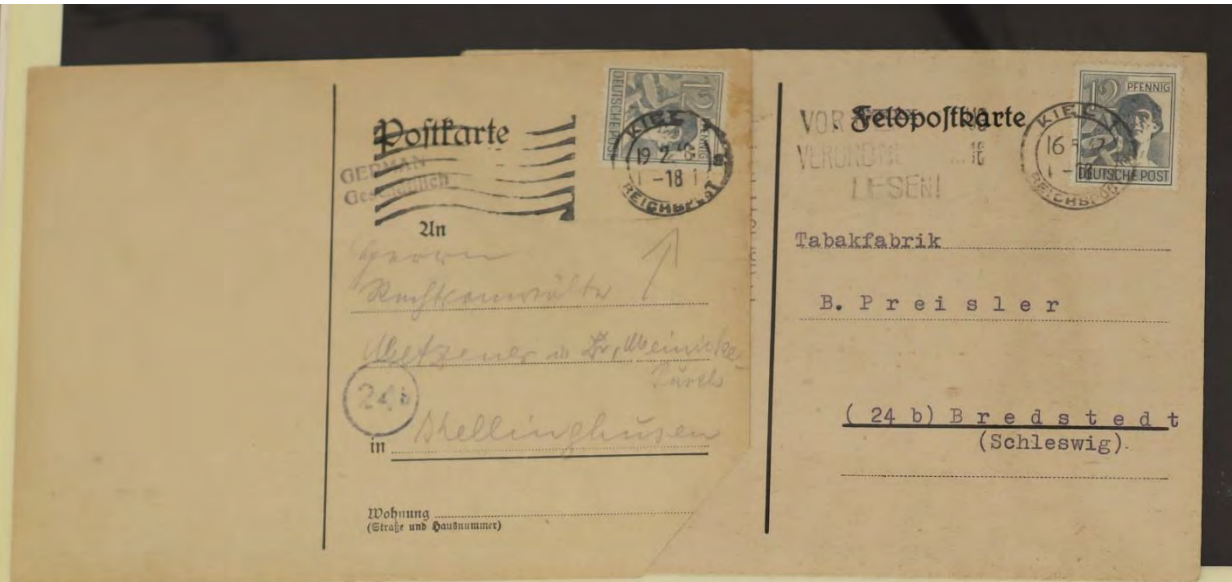 Postkarte
GERMAN
Geschäftlich
DEUTSCHE POST
12
KIEL
19 2
-18
REICHSPOST
An
Herrn
Rechtsanwälte
Metzener u Dr, Meinicke
24b
in Kellinghusen
Wohnung
(Straße und Hausnummer)
Feldpostkarte
VOR
LESEN!
12 PFENNIG
DEUTSCHE POST
KIEL
16
-18
Tabakfabrik
B. Preisler
(24 b) Bredstedt
(Schleswig).